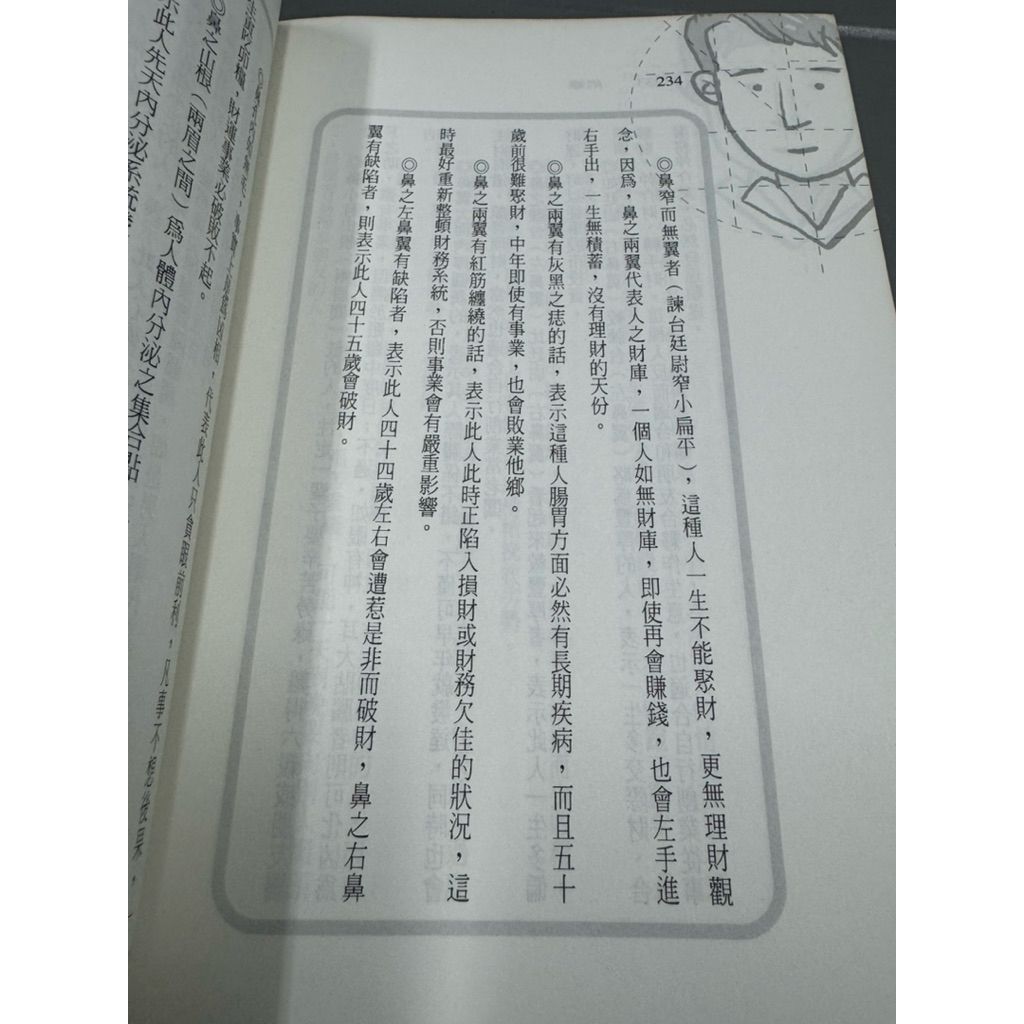 234
◎鼻窄而無翼者（諫台廷尉窄小扁平），這種人一生不能聚財，更無理財觀
念，因為，鼻之兩翼代表人之財庫，一個人如無財庫，即使再會賺錢，也會左手進
右手出，一生無積蓄，沒有理財的天份。
◎鼻之兩翼有灰黑之痣的話，表示這種人腸胃方面必然有長期疾病，而且五十
歲前很難聚財，中年即使有事業，也會敗業他鄉。
◎鼻之兩翼有紅筋纏繞的話，表示此人此時正陷入損財或財務欠佳的狀況，這
時最好重新整頓財務系統，否則事業會有嚴重影響。
◎鼻之左鼻翼有缺陷者，表示此人四十四歲左右會遭惹是非而破財，鼻之右鼻
翼有缺陷者，則表示此人四十五歲會破財。
代表此人只貪眼前利，凡事不想後果，
財運事業必破敗不起。
◎鼻之山根（兩眉之間）為人體內分泌之集合點
示此人先天內分泌系統